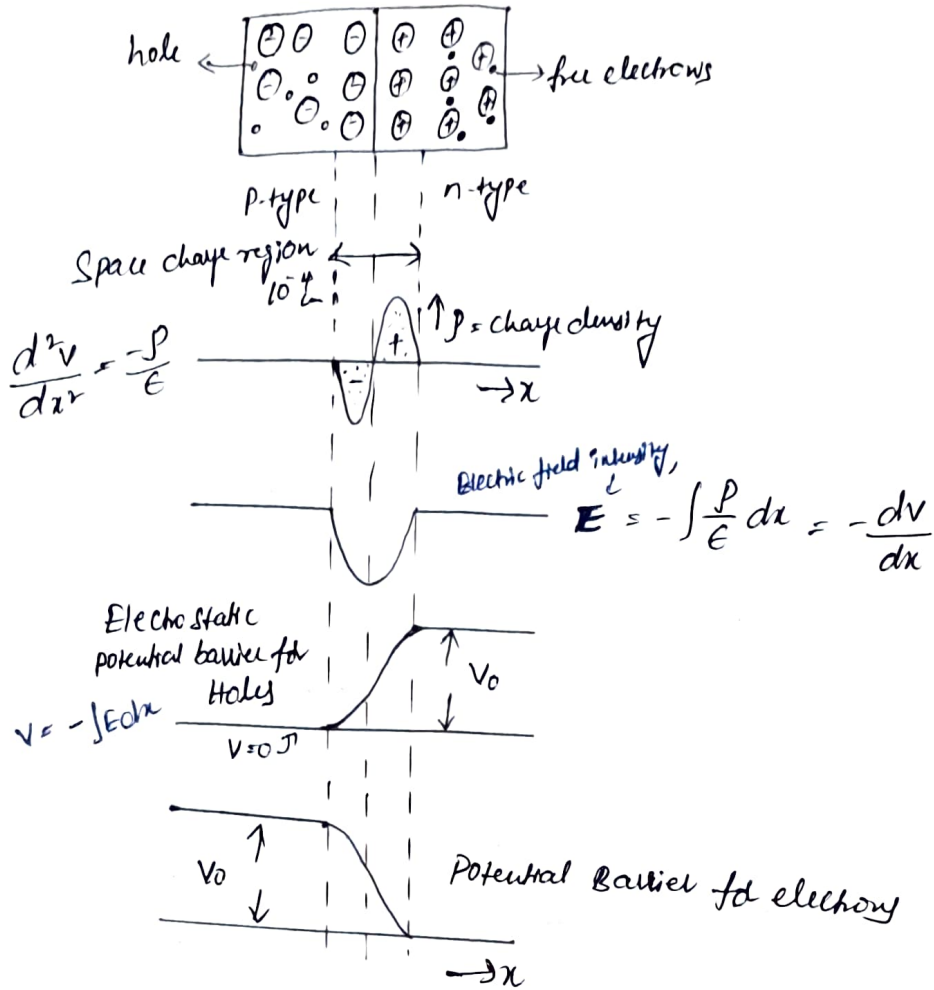 hole
free electrons
p-type
n-type
Space charge region
ρ = charge density
+
-
d²v/dx² = -ρ/ϵ
→x
Electric field intensity,
E = -∫ ρ/ϵ dx = -dv/dx
Electrostatic
potential barrier for
Holes
V = -∫Edx
V=0
V₀
V₀
Potential Barrier for electrons
→x